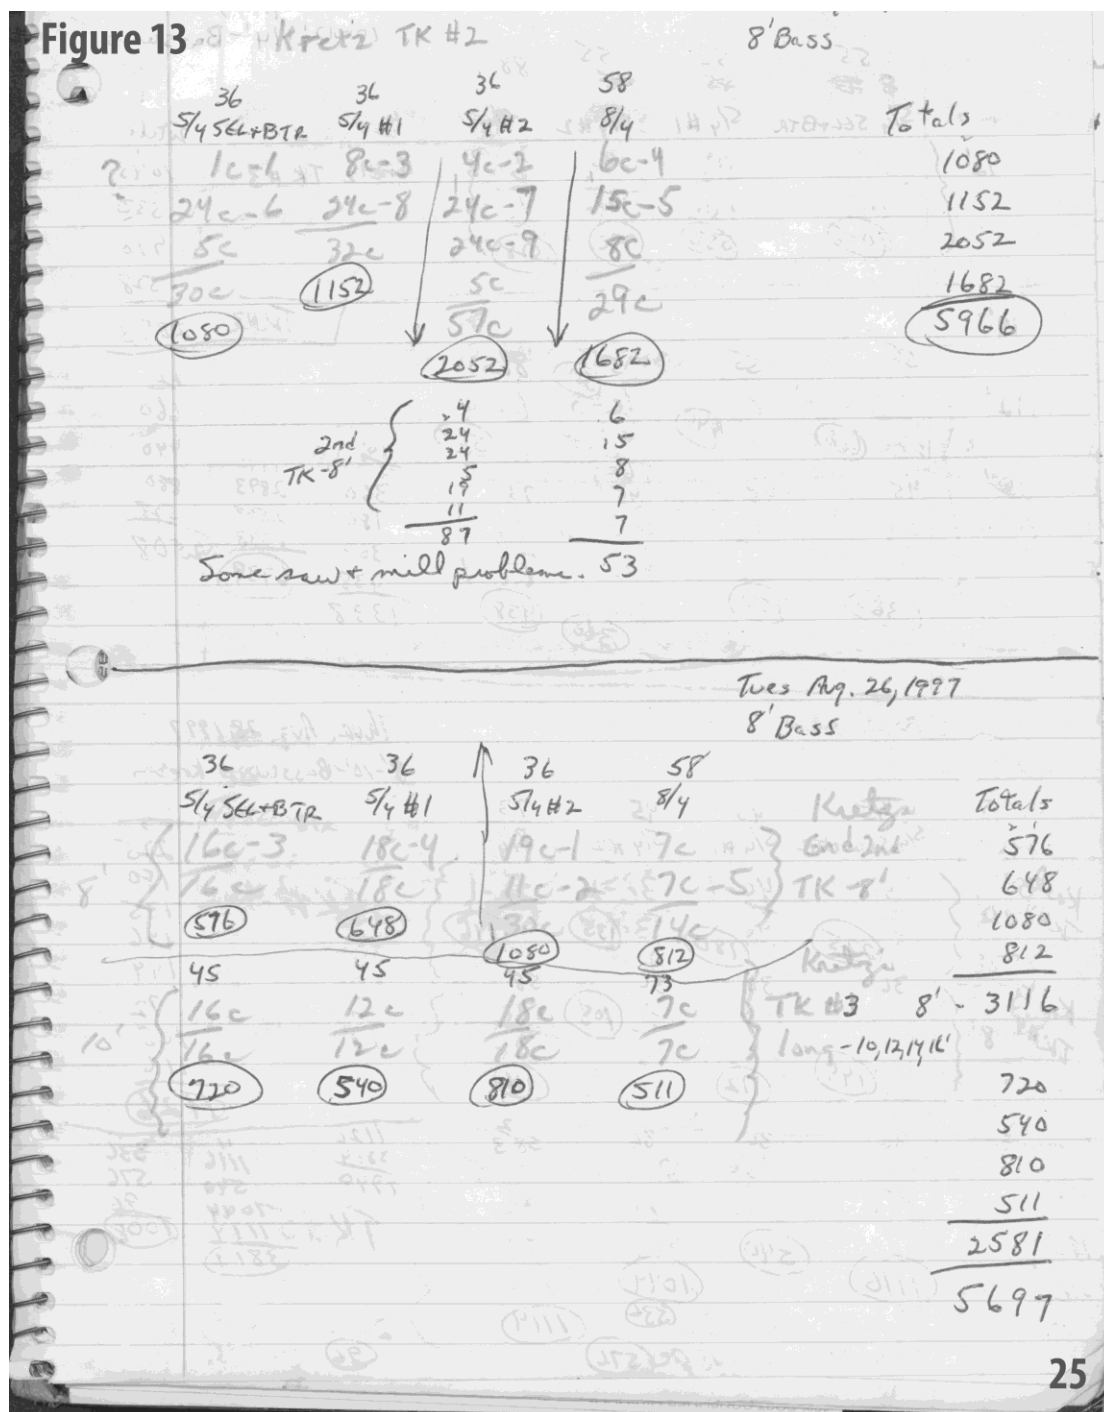 Figure 13 Kretz TK #2 8' Bass
36 36 36 58
5/4 SEL+BTR 5/4 #1 5/4 #2 8/4 Totals
? 1c-1 8c-3 4c-2 6c-4 1080
24c-6 24c-8 24c-7 15c-5 1152
5c 32c 24c-9 8c 2052
30c 1152 5c 29c 1682
1080 57c 5966
2052 1682
4 6
24 15
2nd 24 8
TK-8' 5 7
19 7
11
87
Some saw + mill problems. 53
Tues Aug. 26, 1997
8' Bass
36 36 36 58
5/4 SEL+BTR 5/4 #1 5/4 #2 8/4 Kretz Totals
16c-3 18c-4 19c-1 7c End 2nd 576
8' 16c 18c 11c-2 7c-5 TK-8' 648
576 648 30c 14c 1080
1080 812 Kretz 812
45 45 45 73
16c 12c 18c 7c TK #3 8' - 3116
10' 16c 12c 18c 7c long-10,12,14,16'
720 540 810 511 720
540
810
511
2581
5697
25